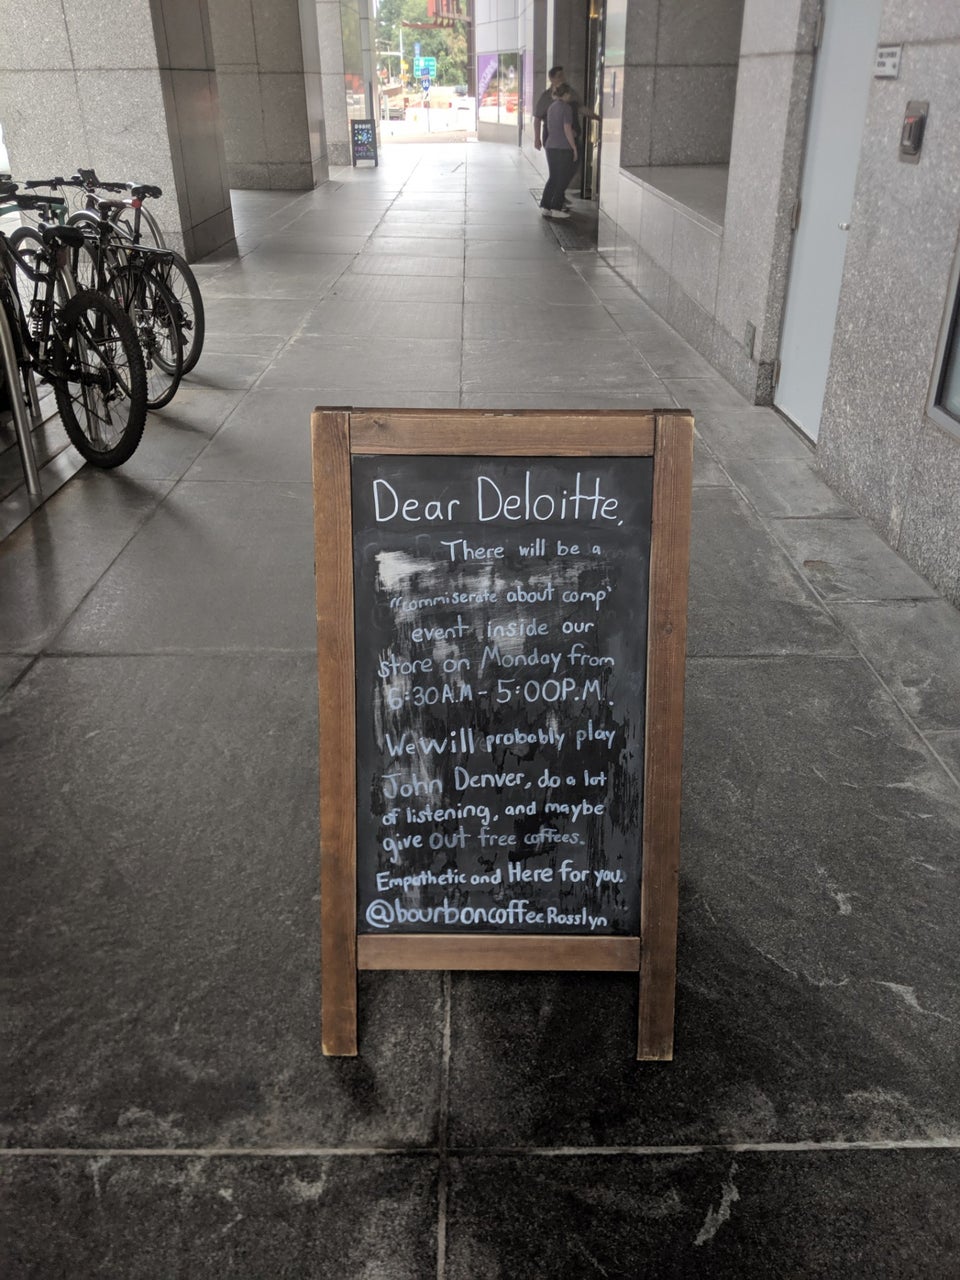 Dear Deloitte,
There will be a
"commiserate about comp"
event inside our
store on Monday from
6:30A.M - 5:00P.M.
We will probably play
John Denver, do a lot
of listening, and maybe
give out free coffees.
Empathetic and Here for you.
@bourboncoffeeRosslyn